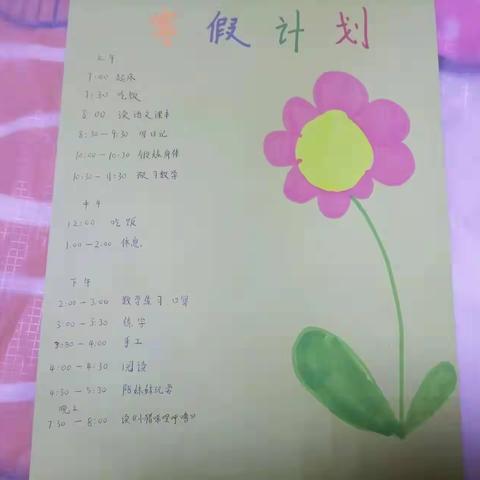 寒假计划
上午
7:00 起床
7:30 吃饭
8:00 读语文课本
8:30—9:30 写日记
10:00—10:30 锻炼身体
10:30—11:30 预习数学
中午
12:00 吃饭
1:00—2:00 休息。
下午
2:00—3:00 数学练习 口算
3:00—3:30 练字
3:30—4:00 手工
4:00—4:30 阅读
4:30—5:30 陪妹妹玩耍
晚上
7:30—8:00 读《小猪唏哩呼噜》